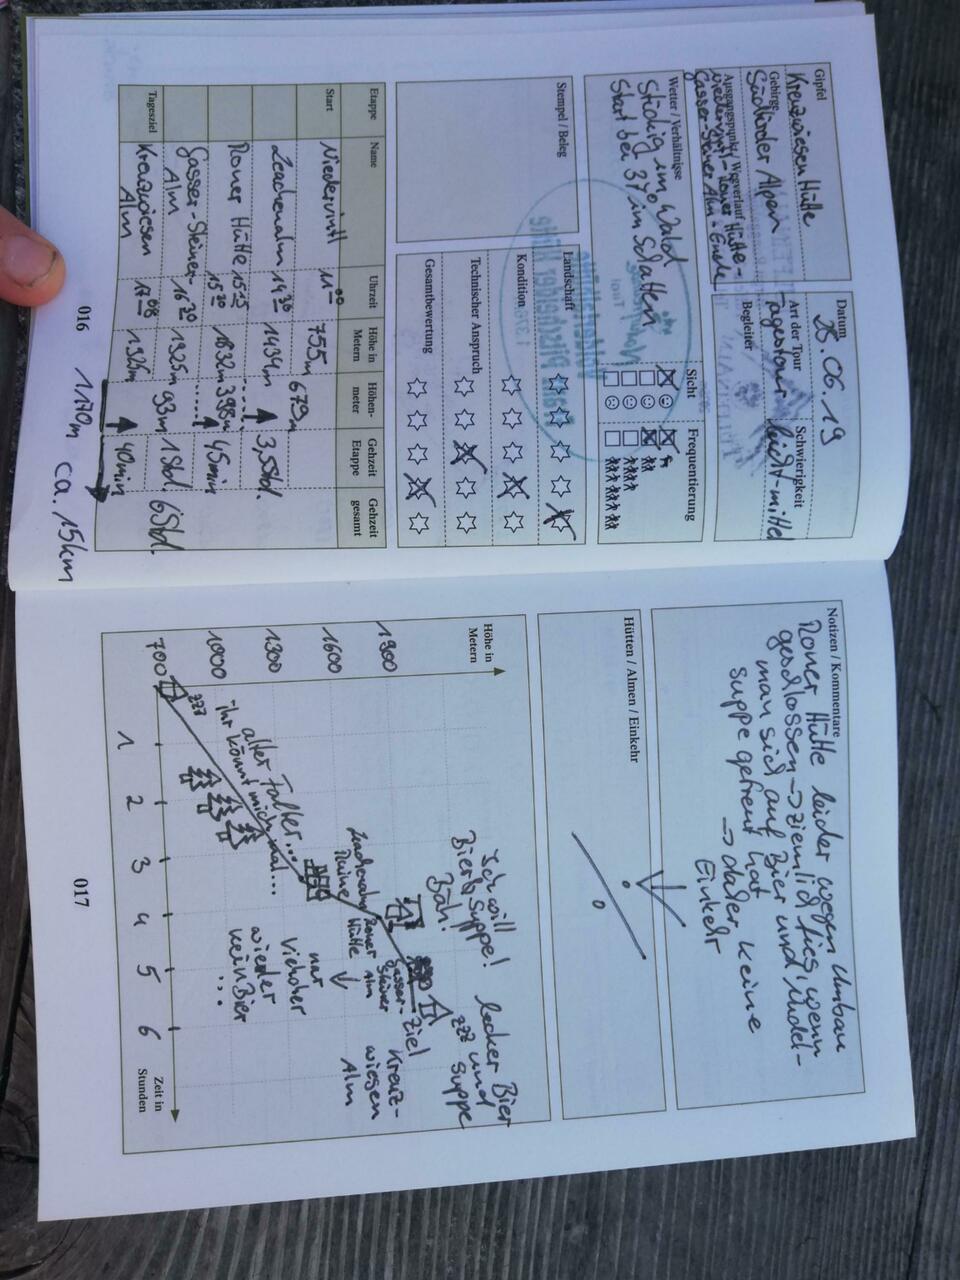 Gipfel
Kreuzwiesen Hütte
Datum
28.06.19
Gebirge
Südtiroler Alpen
Art der Tour
Tagestour
Schwierigkeit
leicht-mittel
Ausgangspunkt / Wegverlauf
Niedervintl - Roner Hütte -
Gasser-Steiner Alm - Ende
Begleiter
Wetter / Verhältnisse
Stickig im Wald
Start bei 37° im Schatten
Sicht
Frequentierung
Stempel / Beleg
Landschaft
Kondition
Technischer Anspruch
Gesamtbewertung
Etappe Name Uhrzeit Höhe in Metern Höhenmeter Gehzeit Etappe Gehzeit gesamt
Start Niedervintl 11 00 755m
14 30 1434m 679m 3,5Std.
Roner Hütte 15 15 15 20 1832m 398m 45min
Gasser-Steiner- Alm 16 20 1925m 93m 1Std.
Tagesziel Kreuzwiesen Alm 17 08 1925m 40min 6Std.
016
1170m ca. 15km
Notizen / Kommentare
Roner Hütte leider wegen Umbau
geschlossen → ziemlich fies, wenn
man sich auf Bier und Nudel-
suppe gefreut hat
→ daher keine
Einkehr
Hütten / Almen / Einkehr
Höhe in
Metern
1900
1600
1300
1000
700
Ich will
Bier & Suppe!
Bäh!
lecker Bier
und
Suppe
zzz
alter Falter...
ihr könnt mich mal...
zzz
Ruine
Roner
Hütte
Gasser-
Steiner
Alm
Ziel
Kreuz-
wiesen
Alm
nur
wieder
kein Bier
...
1 2 3 4 5 6
Zeit in
Stunden
017